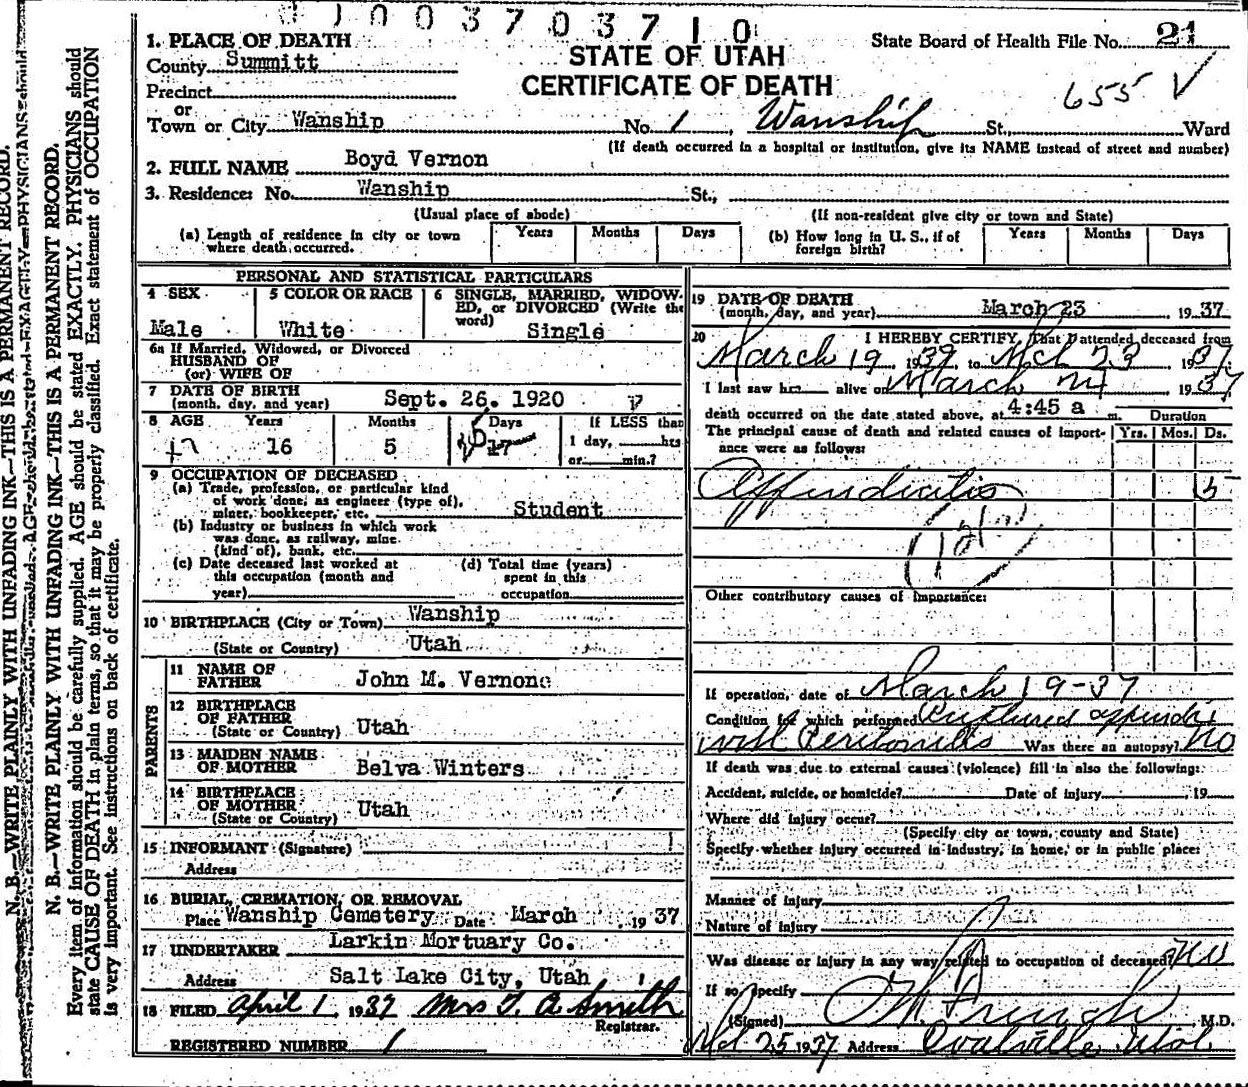 0 1 0 0 3 7 0 3 7 1 0
STATE OF UTAH
CERTIFICATE OF DEATH
State Board of Health File No. 21
655 ✓
1. PLACE OF DEATH
County Summitt
Precinct
or
Town or City Wanship No. 1, Wanship St., Ward
(If death occurred in a hospital or institution, give its NAME instead of street and number)
2. FULL NAME Boyd Vernon
3. Residence: No. Wanship St.,
(Usual place of abode) (If non-resident give city or town and State)
(a) Length of residence in city or town where death occurred. Years Months Days (b) How long in U. S., if of foreign birth? Years Months Days
PERSONAL AND STATISTICAL PARTICULARS
4 SEX Male
5 COLOR OR RACE White
6 SINGLE, MARRIED, WIDOWED, or DIVORCED (Write the word) Single
6a If Married, Widowed, or Divorced
HUSBAND OF
(or) WIFE OF
7 DATE OF BIRTH
(month, day, and year) Sept. 26, 1920
8 AGE Years 16 Months 5 Days 27 If LESS than
1 day, hrs
or min.?
9 OCCUPATION OF DECEASED
(a) Trade, profession, or particular kind
of work done, as engineer (type of),
miner, bookkeeper, etc. Student
(b) Industry or business in which work
was done, as railway, mine
(kind of), bank, etc.
(c) Date deceased last worked at
this occupation (month and
year)
(d) Total time (years)
spent in this
occupation
10 BIRTHPLACE (City or Town) Wanship
(State or Country) Utah
PARENTS
11 NAME OF
FATHER John M. Vernon
12 BIRTHPLACE
OF FATHER
(State or Country) Utah
13 MAIDEN NAME
OF MOTHER Belva Winters
14 BIRTHPLACE
OF MOTHER
(State or Country) Utah
15 INFORMANT (Signature)
Address
16 BURIAL, CREMATION, OR REMOVAL
Place Wanship Cemetery Date March , 19 37
17 UNDERTAKER Larkin Mortuary Co.
Address Salt Lake City, Utah
18 FILED April 1, 1937 Mrs F. A Smith
Registrar.
REGISTERED NUMBER 1
19 DATE OF DEATH
(month, day, and year) March 23 , 19 37
20 I HEREBY CERTIFY, That I attended deceased from
March 19 1937 to Mch 23 1937.
I last saw h alive on March 1937
death occurred on the date stated above, at 4:45 a m. Duration
The principal cause of death and related causes of importance were as follows: Yrs. Mos. Ds.
Appendicitis 5
(121)
Other contributory causes of importance:
If operation, date of March 19-37
Condition for which performed Ruptured appendix
with Peritonitis Was there an autopsy? No
If death was due to external causes (violence) fill in also the following:
Accident, suicide, or homicide? Date of injury , 19
Where did injury occur?
(Specify city or town, county and State)
Specify whether injury occurred in industry, in home, or in public place:
Manner of injury
Nature of injury
Was disease or injury in any way related to occupation of deceased? No
If so, specify
(Signed) M.D.
Mch 25 1937 Address Coalville Utah
N. B.—WRITE PLAINLY WITH UNFADING INK—THIS IS A PERMANENT RECORD.
N. B.—WRITE PLAINLY WITH UNFADING INK—THIS IS A PERMANENT RECORD.
Every item of information should be carefully supplied. AGE should be stated EXACTLY. PHYSICIANS should
state CAUSE OF DEATH in plain terms, so that it may be properly classified. Exact statement of OCCUPATION
is very important. See instructions on back of certificate.